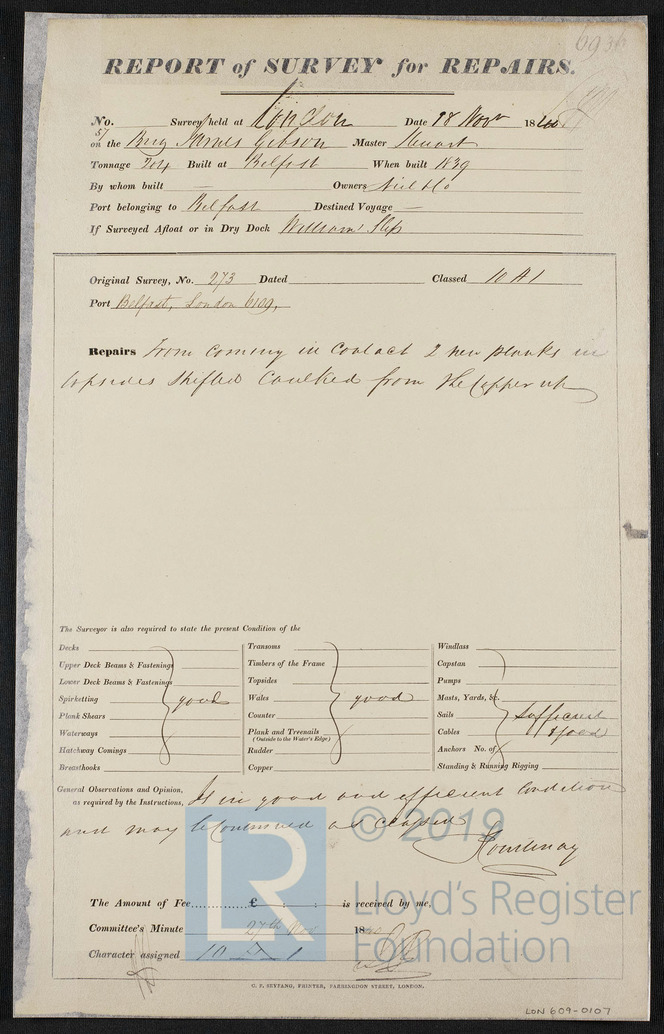 6936
REPORT of SURVEY for REPAIRS.
No. Survey held at London Date 18 Novr 1840
57
on the Brig James Gibson Master Stewart
Tonnage 204 Built at Belfast When built 1839
By whom built — Owners
Port belonging to Belfast Destined Voyage —
If Surveyed Afloat or in Dry Dock Williams' Slip
Original Survey, No. 273 Dated Classed 10 A 1
Port Belfast, London 6109,
Repairs From coming in Contact 2 new planks in
topsides shifted Caulked from the Copper up
The Surveyor is also required to state the present Condition of the
Decks Transoms Windlass
Upper Deck Beams & Fastenings Timbers of the Frame Capstan
Lower Deck Beams & Fastenings Topsides Pumps
Spirketting good Wales good Masts, Yards, &c.
Plank Shears Counter Sails Sufficient
Waterways Plank and Treenails Cables & good
(Outside to the Water's Edge)
Hatchway Comings Rudder Anchors No. of
Breasthooks Copper Standing & Running Rigging
General Observations and Opinion,
as required by the Instructions, Is in good and efficient Condition
and may be Continued as classed
Courtenay
© 2019
Lloyd's Register
Foundation
LR
The Amount of Fee............£ : : is received by me,
Committee's Minute 27th Nov 1840
Character assigned 10 A 1
C. F. SEYFANG, PRINTER, FARRINGDON STREET, LONDON.
LON 609-0107